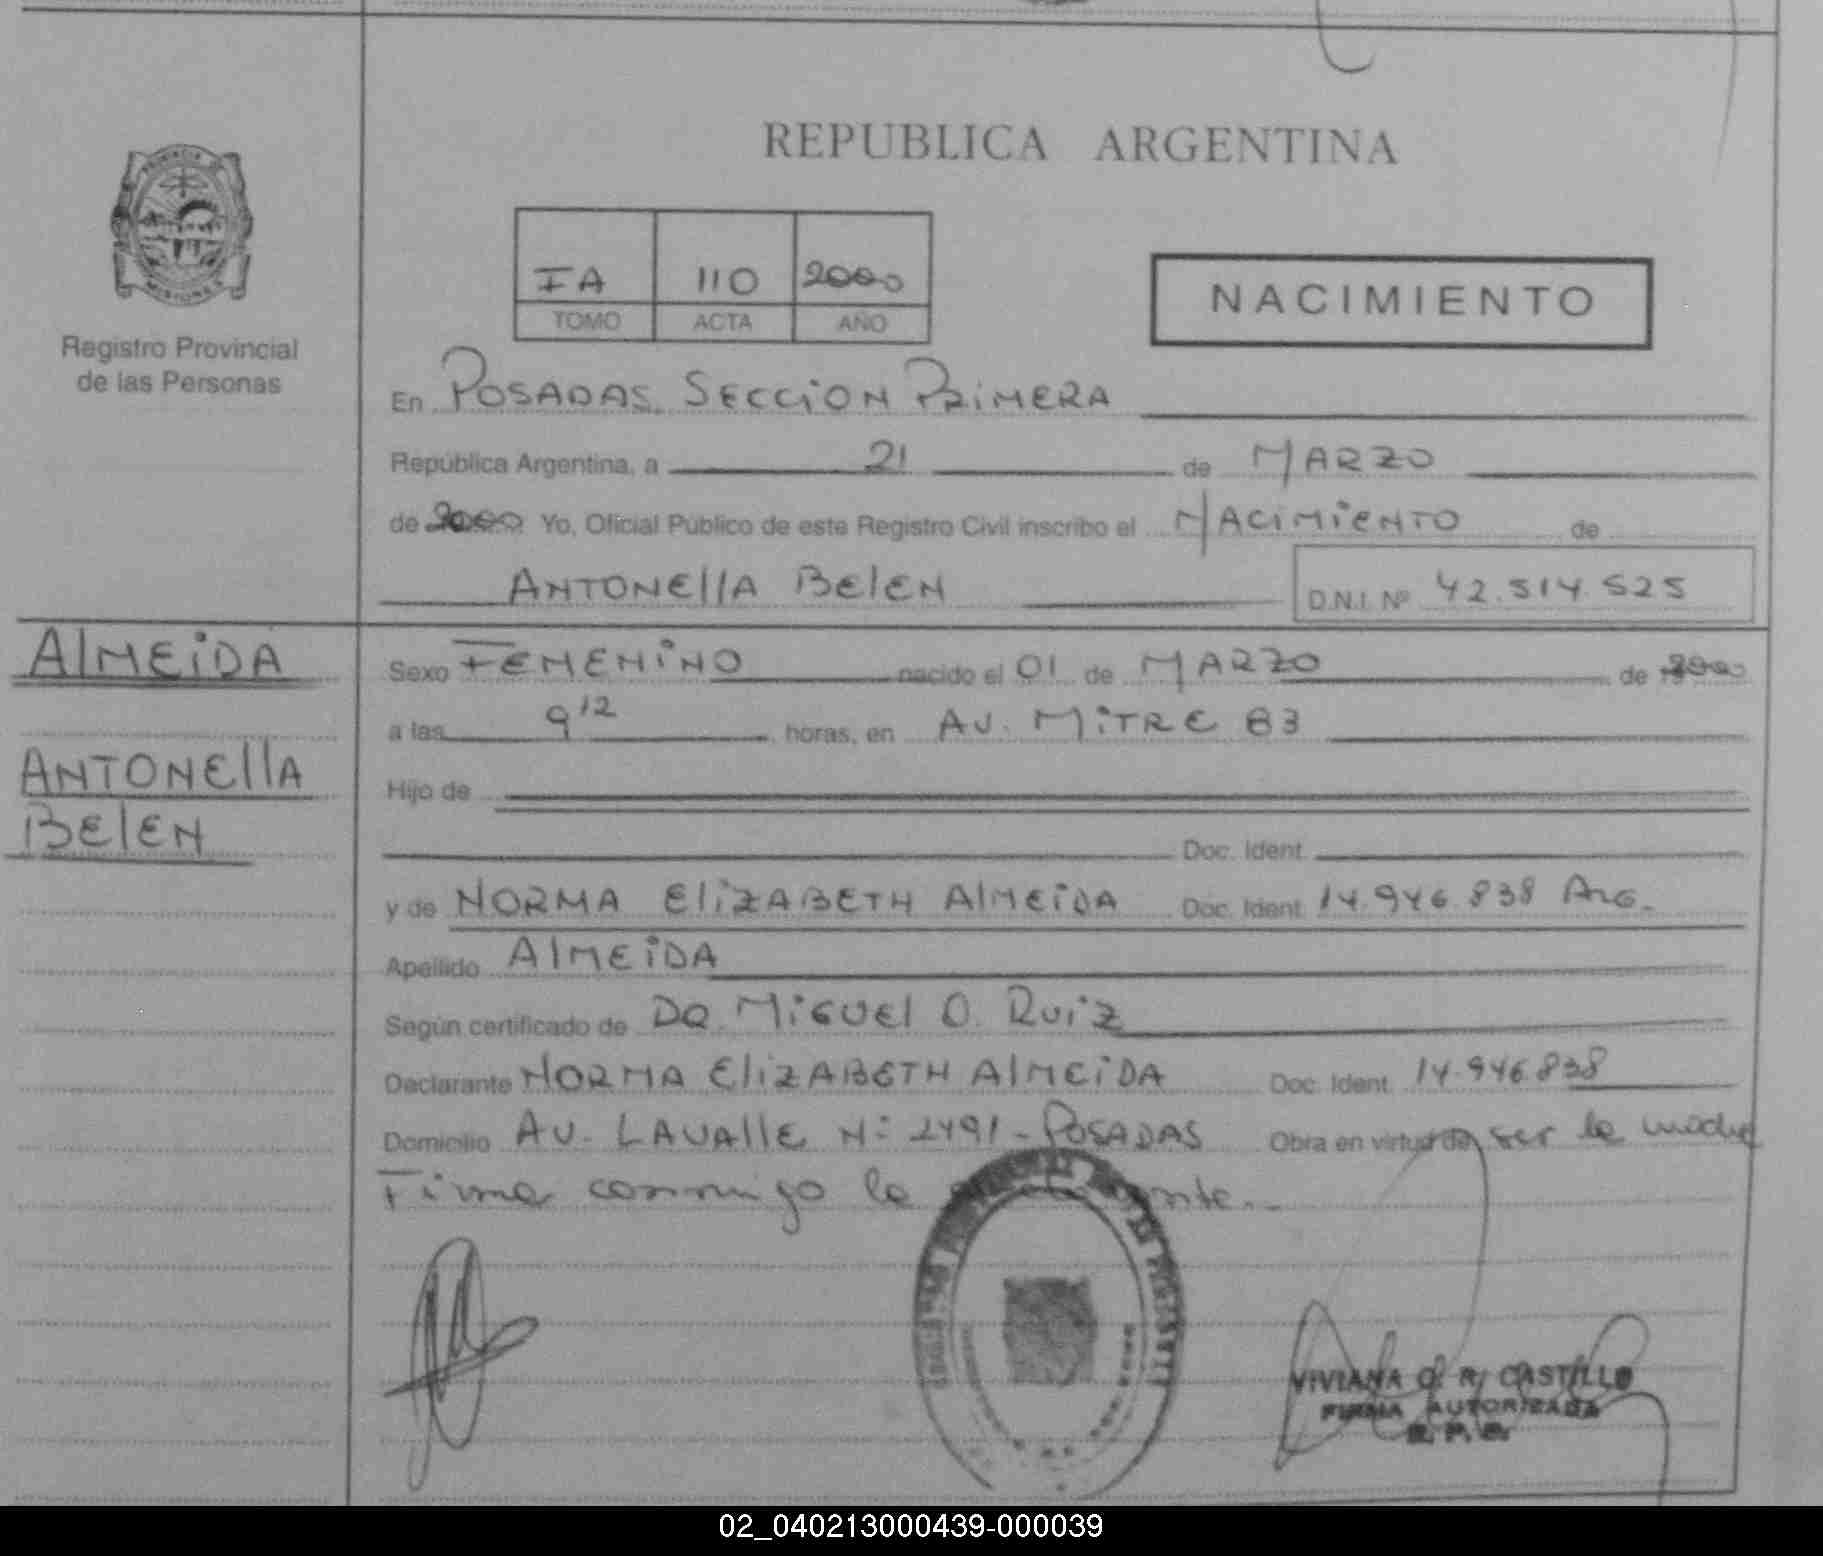 REPUBLICA ARGENTINA
PROVINCIA DE
MISIONES
Registro Provincial
de las Personas
IA 110 2000
TOMO ACTA AÑO
NACIMIENTO
En POSADAS SECCION PRIMERA
República Argentina, a 21 de MARZO
de 2000 Yo, Oficial Público de este Registro Civil inscribo el NACIMIENTO de
ANTONEllA BElEN D.N.I. Nº 42.514.525
AlMEiDA
ANTONEllA
BElEN
Sexo FEMENiNO nacido el 01 de MARZO de 2000
a las 9 12 horas, en AV. MiTRE 83
Hijo de
Doc. Ident.
y de NORMA EliZABETH AlMEiDA Doc. Ident. 14.946.838 ARG.
Apellido AlMEiDA
Según certificado de DR. MiGUEl O. RUiZ
Declarante NORMA EliZABETH AlMEiDA Doc. Ident. 14.946.838
Domicilio AV. LAVAllE N: 2491 - POSADAS Obra en virtud de ser la madre
Firma conmigo la
VIVIANA O. R. CASTILLO
FIRMA AUTORIZADA
R. P. P.
02_040213000439-000039